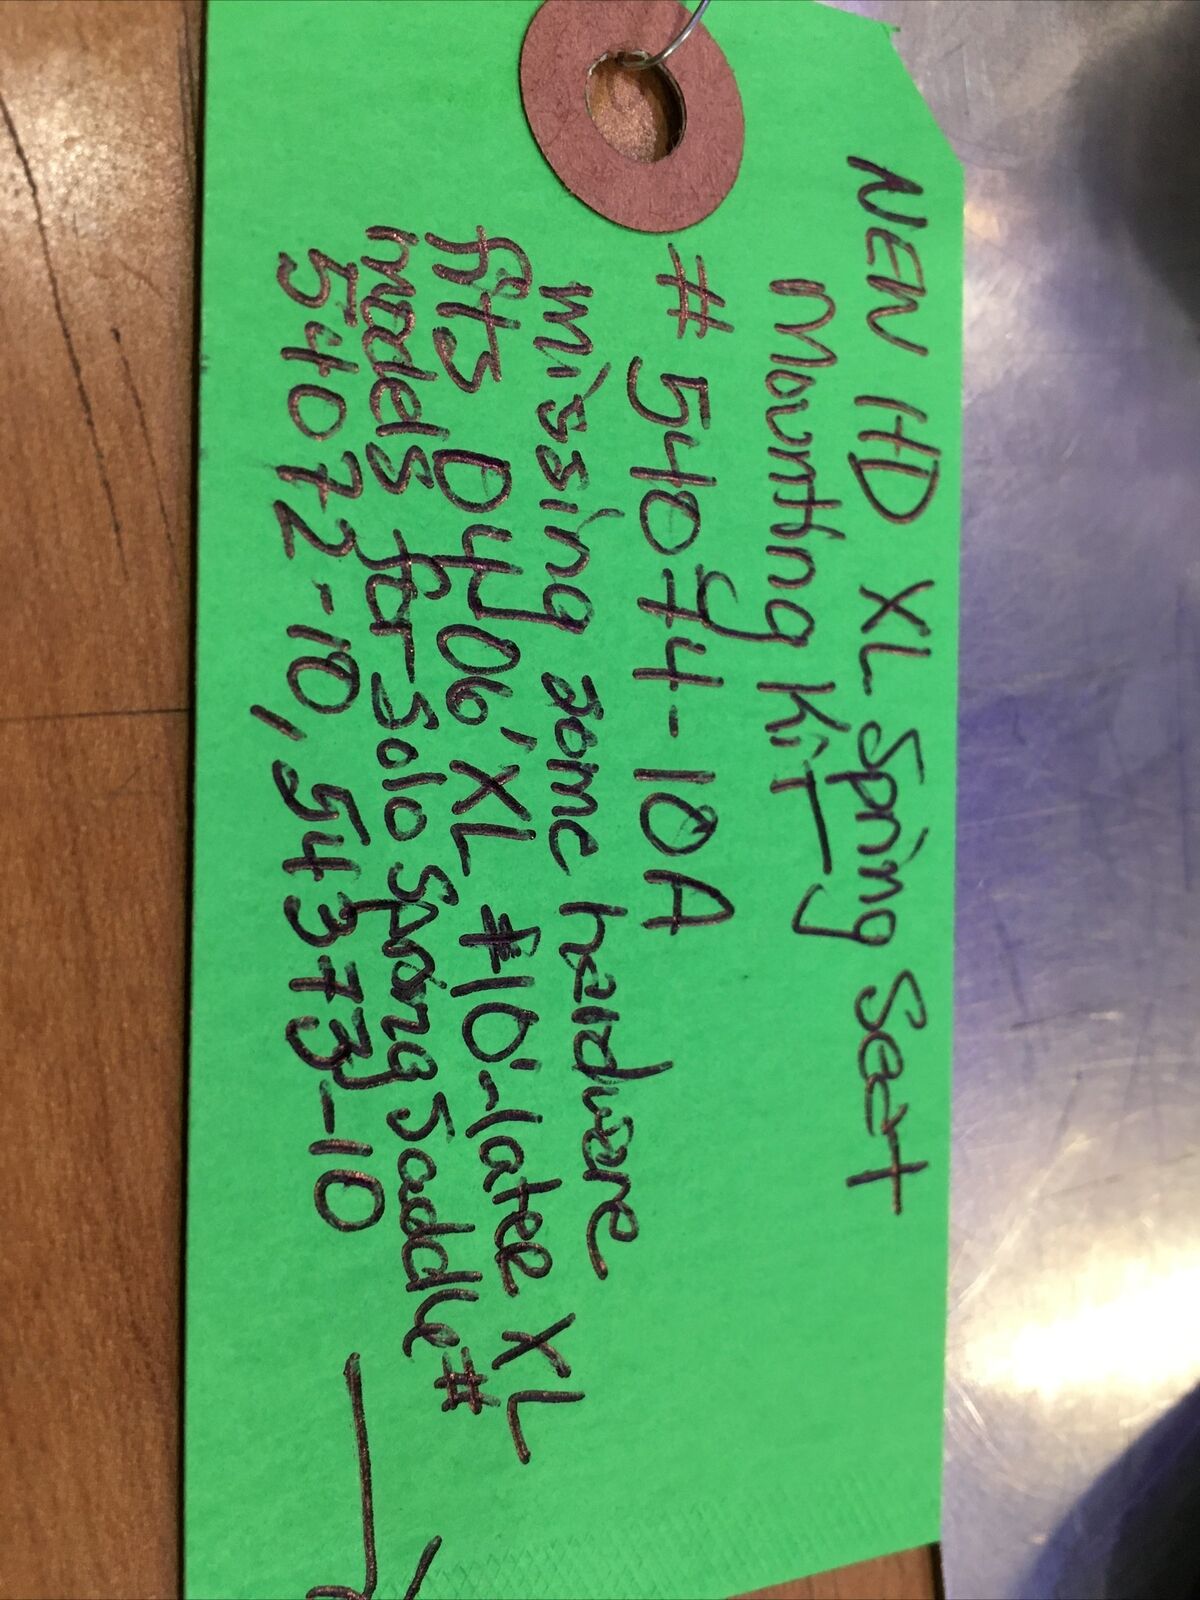 NEW HD XL Spring Seat
Mounting KiT
# 54094-10A
missing some hardware
fits Dy 06', XL #10'-later XL
models for Solo Spring Saddle #
54072-10, 54373-10